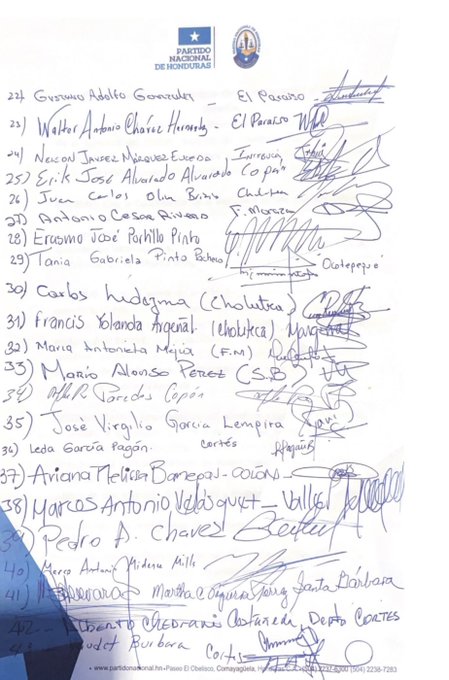 PARTIDO
NACIONAL
DE HONDURAS
22) Gustavo Adolfo Gonzales - El Paraiso -
23) Walter Antonio Cháves Hernandez - El Paraiso
24) Nelson Javier Márquez Euceda, Intibucá
25) Erik José Alvarado Alvarado Copán
26) Juan Carlos Oliva Choluteca
27) Antonio Cesar Rivera F. Morazan
28) Erasmo José Portillo Pinto
29) Tania Gabriela Pinto Pacheco "Ocotepeque"
30) Carlos Ledezma (Choluteca)
31) Francis Yolanda Argeñal (Choluteca)
32) Maria Antonieta Mejia (F.M)
33) Mario Alonso Perez (S.B)
34) Paredes Copán
35) José Virgilio Garcia Lempira
36) Leda García Pagán. Cortés
37) Ariana Melissa Banegas - COLÓN -
38) Marcos Antonio Velásquez - Valle
39) Pedro A. Chavez
40) Marco Antonio Midence Milla
41) Martha Santa Bárbara
42 - Alberto Chedrani Castañeda, Depto CORTES
43 - Cortés
• www.partidonacional.hn • Paseo El Obelisco, Comayagüela, Honduras (504) 2238-7283